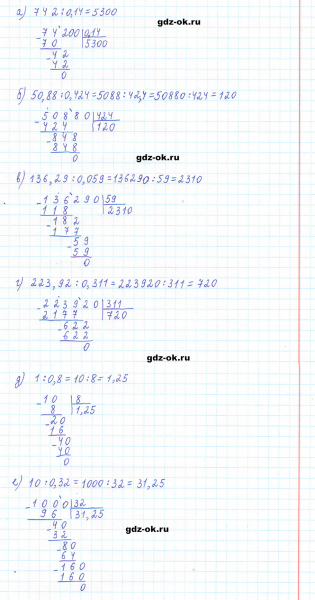 gdz-ok.ru
а) 742 : 0,14 = 5300
- 74200 | 0,14
70 | 5300
- 42
42
0
б) 50,88 : 0,424 = 5088 : 42,4 = 50880 : 424 = 120
- 50880 | 424
424 | 120
- 848
848
0
gdz-ok.ru
в) 136,29 : 0,059 = 136290 : 59 = 2310
- 136290 | 59
118 | 2310
- 182
177
- 59
59
0
г) 223,92 : 0,311 = 223920 : 311 = 720
- 223920 | 311
2177 | 720
- 622
622
0
gdz-ok.ru
д) 1 : 0,8 = 10 : 8 = 1,25
- 10 | 8
8 | 1,25
- 20
16
- 40
40
0
е) 10 : 0,32 = 1000 : 32 = 31,25
- 1000 | 32
96 | 31,25
- 40
32
- 80
64
- 160
160
0
gdz-ok.ru